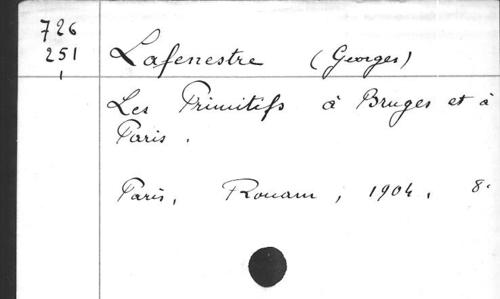 726
251
Lafenestre (Georges)
Les Primitifs à Bruges et à
Paris.
Paris, Rouam, 1904, 8.